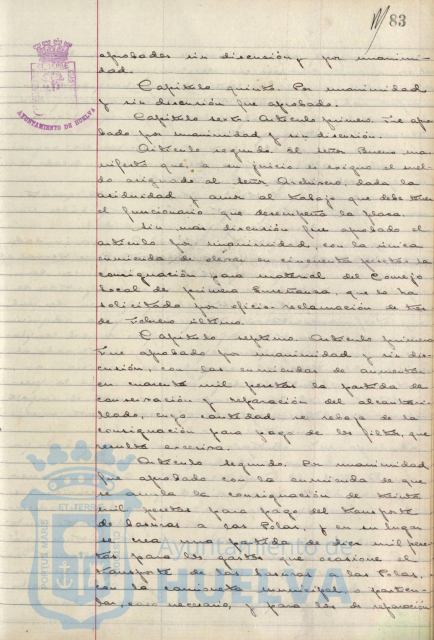 83
aprobados sin discusión y por unanimi-
dad.
Capítulo quinto. Por unanimidad
y sin discusión fue aprobado.
Capítulo sexto. Artículo primero. Fue apro-
bado por unanimidad y sin discusión.
Artículo segundo. El señor Bueno ma-
nifestó que, a su juicio es exiguo el suel-
do asignado al señor Archivero, dada la
asiduidad y amor al trabajo que debe tener
el funcionario que desempeñe la plaza.
Sin más discusión fue aprobado el
artículo por unanimidad, con la única
enmienda de elevar en cincuenta pesetas la
consignación para material del Consejo
Local de primera Enseñanza, que se ha
solicitado por oficio reclamación de tres
de Febrero último.
Capítulo septimo. Artículo primero
Fue aprobado por unanimidad y sin dis-
cusión, con las enmiendas de aumentar
en cuarenta mil pesetas la partida de
conservación y reparación del alcantari-
llado, cuya cantidad se rebaja de la
consignación para pago de los filtros, que
resulta excesiva.
Artículo segundo. Por unanimidad
fue aprobado con la enmienda de que
se anula la consignación de treinta
mil pesetas para pago del transporte
de basuras a las Polas, y en su lugar
se crea una partida de diez mil pese-
tas para los gastos que ocasione el
transporte de las basuras a las Polas,
con la camioneta municipal, o particu-
lar, caso necesario, y para los de reparación
AYUNTAMIENTO DE HUELVA
PORTUS MARIS ET TERR
Ayuntamiento de
HUELVA